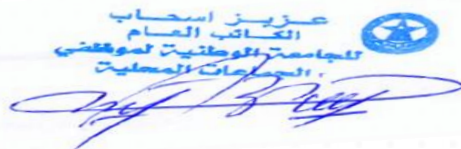 عزيز اسحاب
الكاتب العام
للجامعة الوطنية لموظفي
الجماعات المحلية